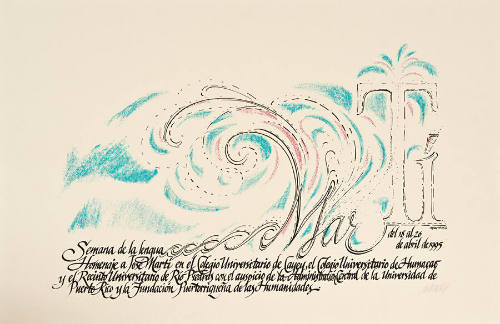 MarTí
del 18 al 26
de abril de 1995
Semana de la lengua
Homenaje a José Martí en el Colegio Universitario de Cayey, el Colegio Universitario de Humacao
y el Recinto Universitario de Río Piedras con el auspicio de la Administración Central de la Universidad de
Puerto Rico y la Fundación Puertorriqueña de las Humanidades